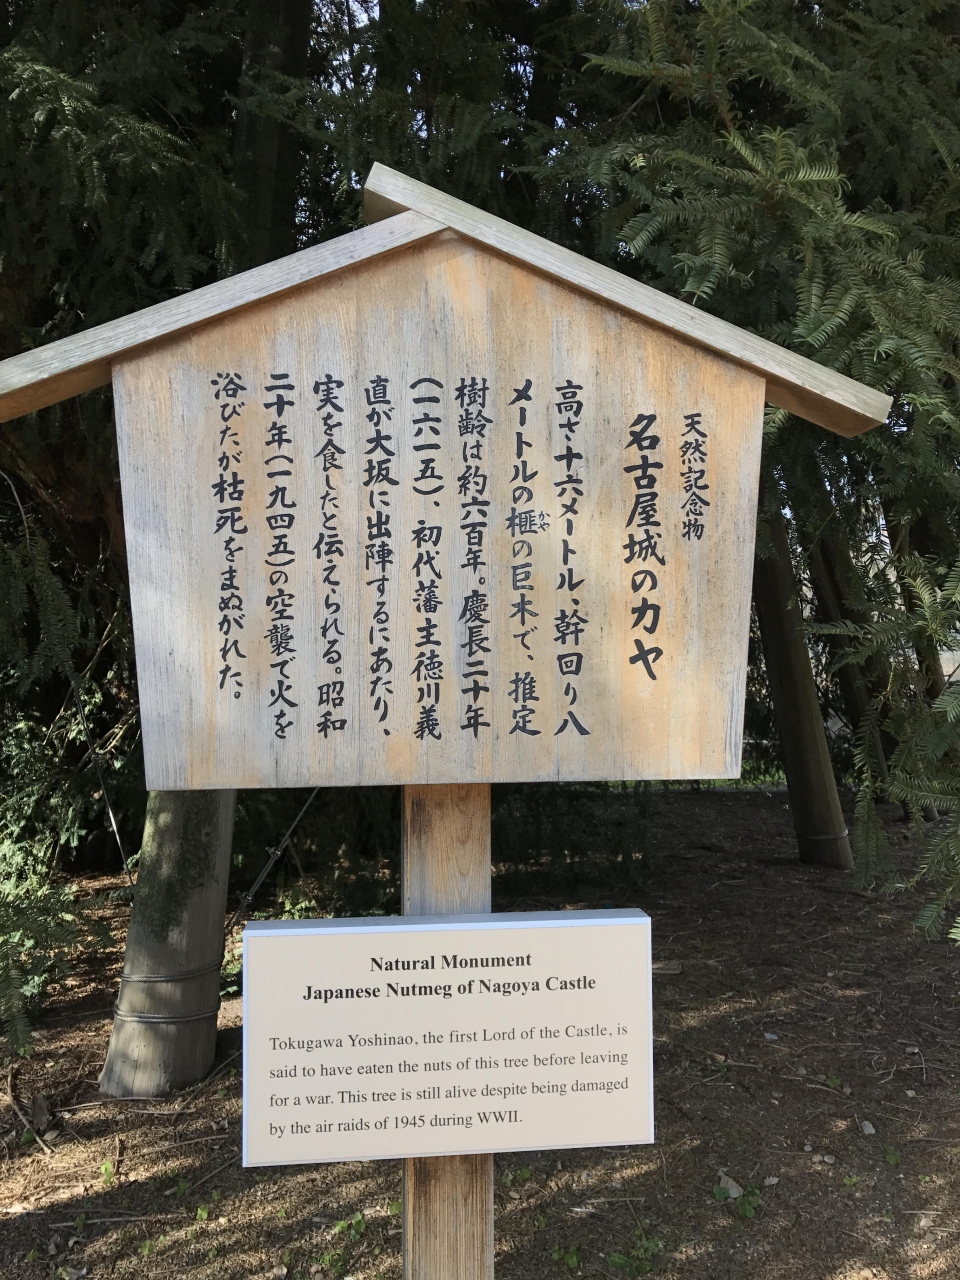 天然記念物
名古屋城のカヤ
高さ十六メートル、幹回り八
メートルの榧の巨木で、推定
かや
樹齢は約六百年。慶長二十年
(一六一五)、初代藩主徳川義
直が大坂に出陣するにあたり、
実を食したと伝えられる。昭和
二十年(一九四五)の空襲で火を
浴びたが枯死をまぬがれた。
Natural Monument
Japanese Nutmeg of Nagoya Castle
Tokugawa Yoshinao, the first Lord of the Castle, is
said to have eaten the nuts of this tree before leaving
for a war. This tree is still alive despite being damaged
by the air raids of 1945 during WWII.